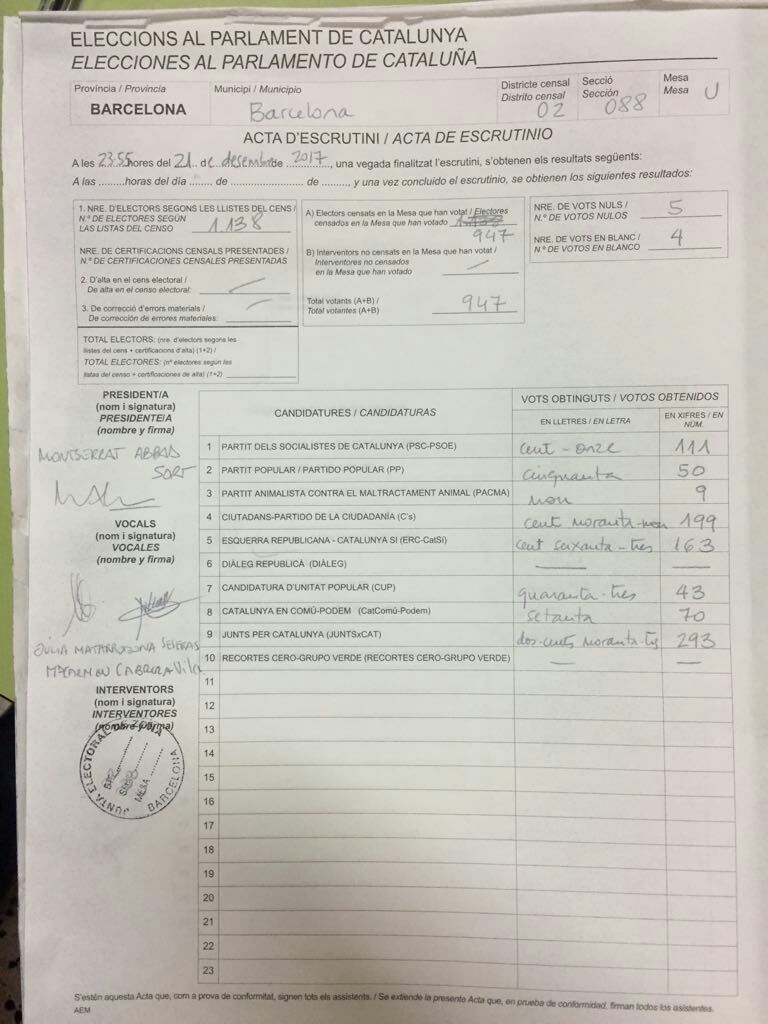 ELECCIONS AL PARLAMENT DE CATALUNYA
ELECCIONES AL PARLAMENTO DE CATALUÑA
Província / Provincia
BARCELONA
Municipi / Municipio
Barcelona
Districte censal
Distrito censal
02
Secció
Sección
088
Mesa
Mesa
U
ACTA D'ESCRUTINI / ACTA DE ESCRUTINIO
A les 23:55 hores del 21 de desembre de 2017, una vegada finalitzat l'escrutini, s'obtenen els resultats següents:
A las .........horas del día ...... de ..................... de ........, y una vez concluido el escrutinio, se obtienen los siguientes resultados:
1. NRE. D'ELECTORS SEGONS LES LLISTES DEL CENS /
N.º DE ELECTORES SEGÚN
LAS LISTAS DEL CENSO 1.138
NRE. DE CERTIFICACIONS CENSALS PRESENTADES /
N.º DE CERTIFICACIONES CENSALES PRESENTADAS
2. D'alta en el cens electoral /
De alta en el censo electoral:
3. De correcció d'errors materials /
De corrección de errores materiales:
TOTAL ELECTORS: (nre. d'electors segons les
llistes del cens + certificacions d'alta) (1+2) /
TOTAL ELECTORES: (nº electores según las
listas del censo + certificaciones de alta) (1+2)
A) Electors censats en la Mesa que han votat / Electores
censados en la Mesa que han votado 1.138
947
B) Interventors no censats en la Mesa que han votat /
Interventores no censados
en la Mesa que han votado
Total votants (A+B) /
Total votantes (A+B) 947
NRE. DE VOTS NULS /
N.º DE VOTOS NULOS 5
NRE. DE VOTS EN BLANC /
N.º DE VOTOS EN BLANCO 4
PRESIDENT/A
(nom i signatura)
PRESIDENTE/A
(nombre y firma)
MONTSERRAT ABBAD
SORT
VOCALS
(nom i signatura)
VOCALES
(nombre y firma)
INTERVENTORS
(nom i signatura)
INTERVENTORES
(nombre y firma)
JUNTA ELECTORAL DE ZONA
BARCELONA
MESA
CANDIDATURES / CANDIDATURAS
VOTS OBTINGUTS / VOTOS OBTENIDOS
EN LLETRES / EN LETRA
EN XIFRES / EN NÚM.
1 PARTIT DELS SOCIALISTES DE CATALUNYA (PSC-PSOE) cent-onze 111
2 PARTIT POPULAR / PARTIDO POPULAR (PP) cinquanta 50
3 PARTIT ANIMALISTA CONTRA EL MALTRACTAMENT ANIMAL (PACMA) nou 9
4 CIUTADANS-PARTIDO DE LA CIUDADANÍA (C's) cent noranta-nou 199
5 ESQUERRA REPUBLICANA - CATALUNYA SI (ERC-CatSí) cent seixanta-tres 163
6 DIÀLEG REPUBLICÀ (DIÀLEG) — —
7 CANDIDATURA D'UNITAT POPULAR (CUP) quaranta-tres 43
8 CATALUNYA EN COMÚ-PODEM (CatComú-Podem) setanta 70
9 JUNTS PER CATALUNYA (JUNTSxCAT) dos-cents noranta-tres 293
10 RECORTES CERO-GRUPO VERDE (RECORTES CERO-GRUPO VERDE) — —
11
12
13
14
15
16
17
18
19
20
21
22
23
S'estén aquesta Acta que, com a prova de conformitat, signen tots els assistents. / Se extiende la presente Acta que, en prueba de conformidad, firman todos los asistentes.
AEM